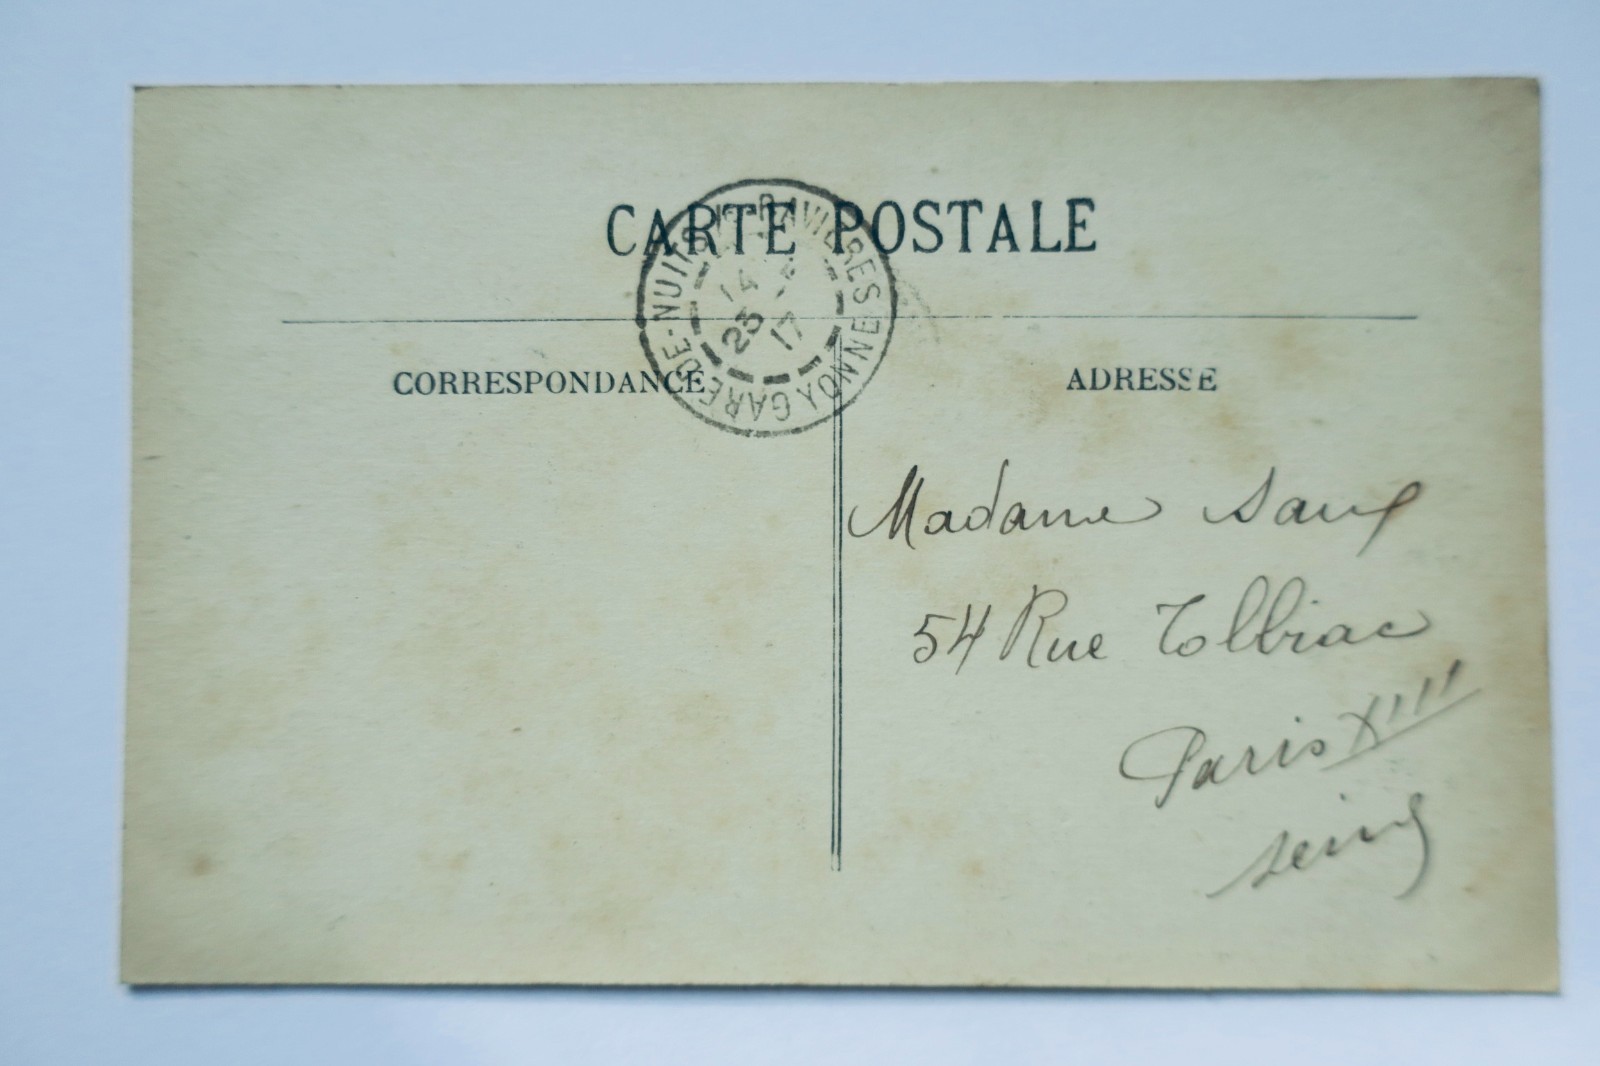 CARTE POSTALE
GARE DE-NUITS
RAVIERES
YONNE
23
17
CORRESPONDANCE
ADRESSE
Madame
54 Rue Tolbiac
Paris XIIII
Seine